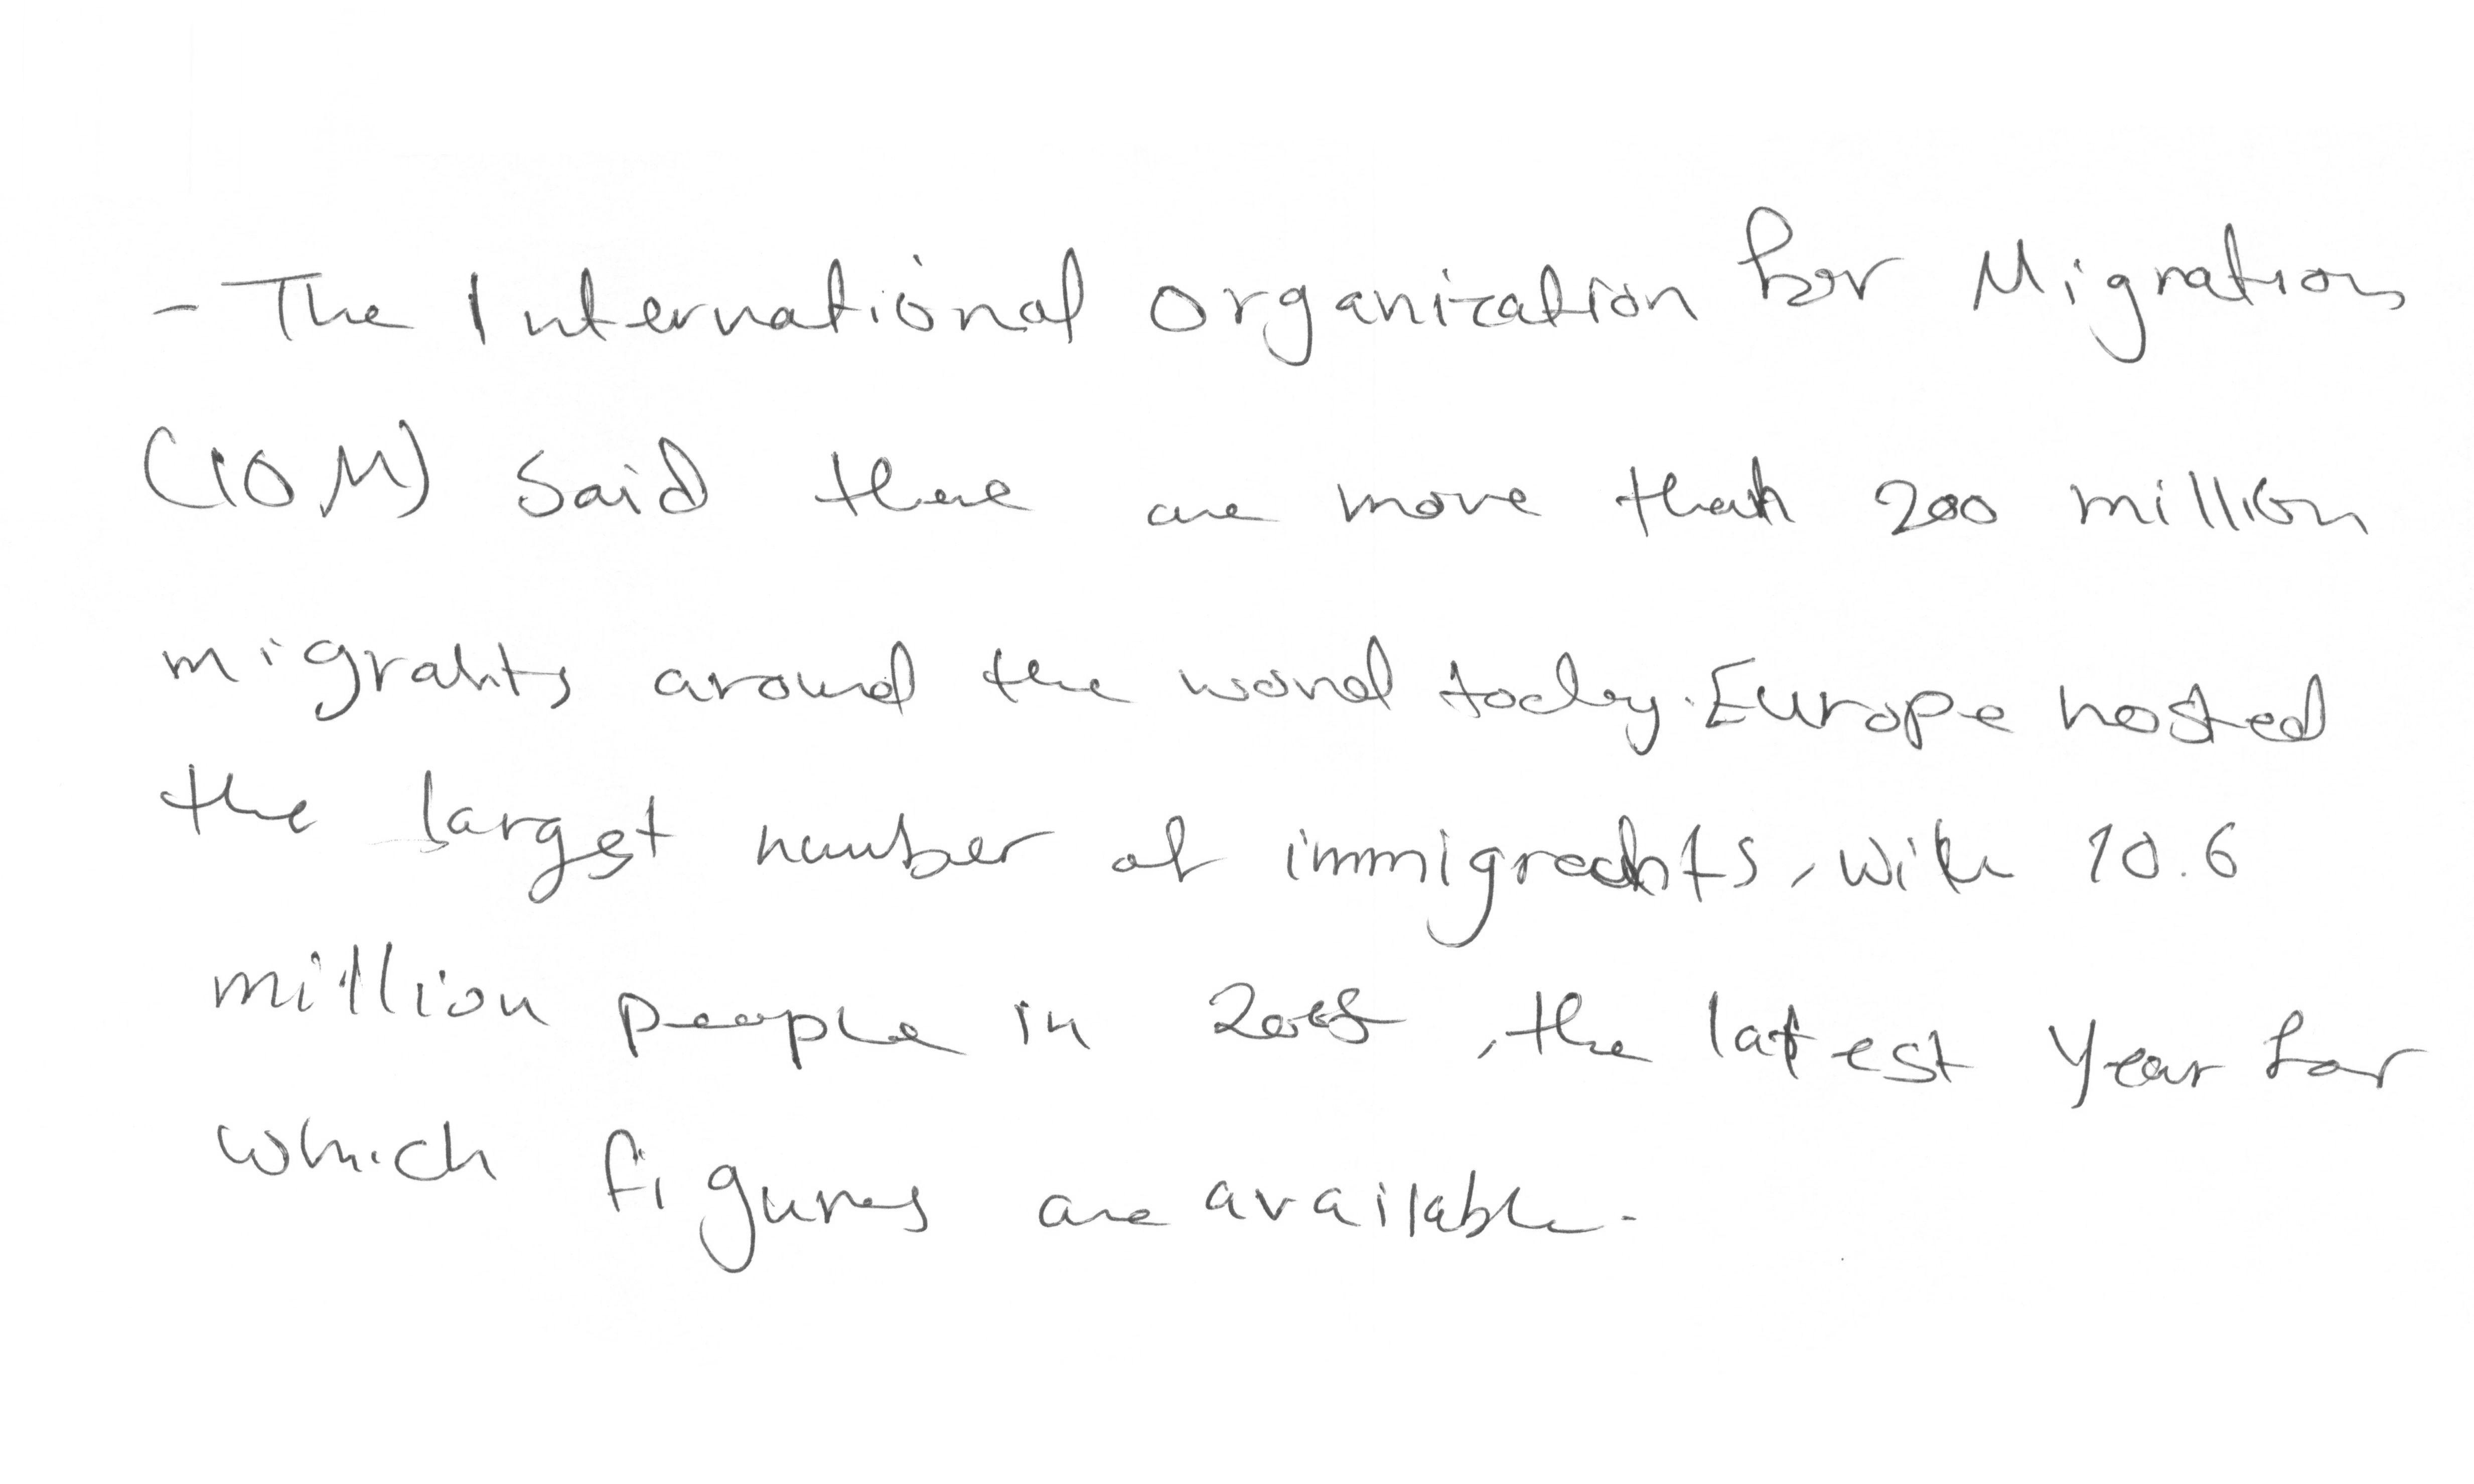 - The International Organization for Migration
(IOM) said there are more than 200 million
migrants around the world today. Europe hosted
the largest number of immigrants, with 70.6
million people in 2005, the latest year for
which figures are available.